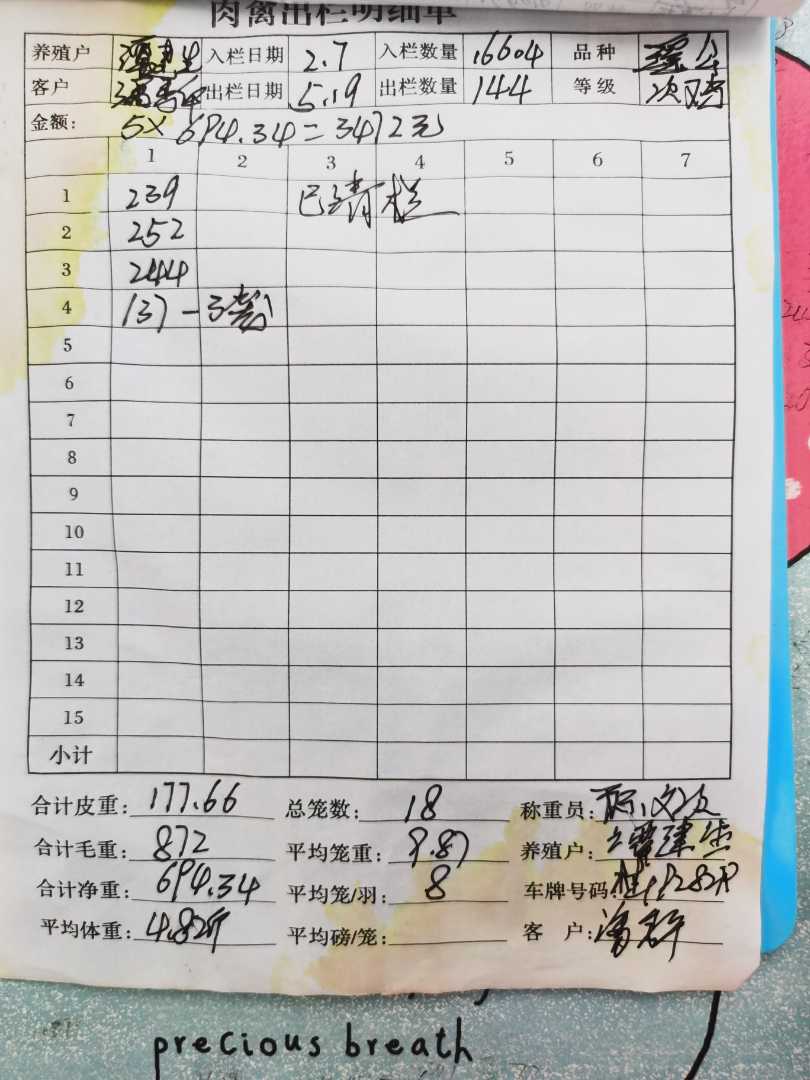 肉禽出栏明细单
养殖户 入栏日期 2.7 入栏数量 16604 品种
客户 出栏日期 5.19 出栏数量 144 等级 次
金额: 5× 694.34=3472元
1 2 3 4 5 6 7
1 239 已清栏
2 252
3 244
4 137 - 3笼
5
6
7
8
9
10
11
12
13
14
15
小计
合计皮重: 177.66 总笼数: 18 称重员:
合计毛重: 872 平均笼重: 9.87 养殖户: 谭建生
合计净重: 694.34 平均笼/羽: 8 车牌号码:
平均体重: 4.82斤 平均磅/笼: 客 户: 潘群
precious breath